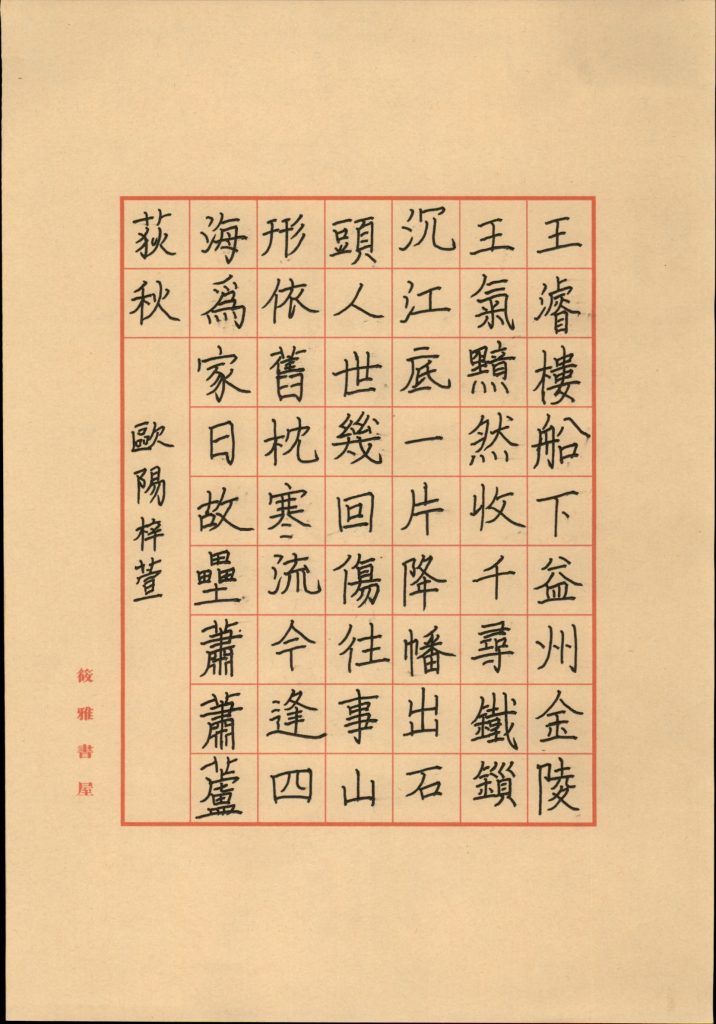 王濬樓船下益州金陵
王氣黯然收千尋鐵鎖
沉江底一片降幡出石
頭人世幾回傷往事山
形依舊枕寒流今逢四
海為家日故壘蕭蕭蘆
荻秋
歐陽梓萱
筱雅書屋